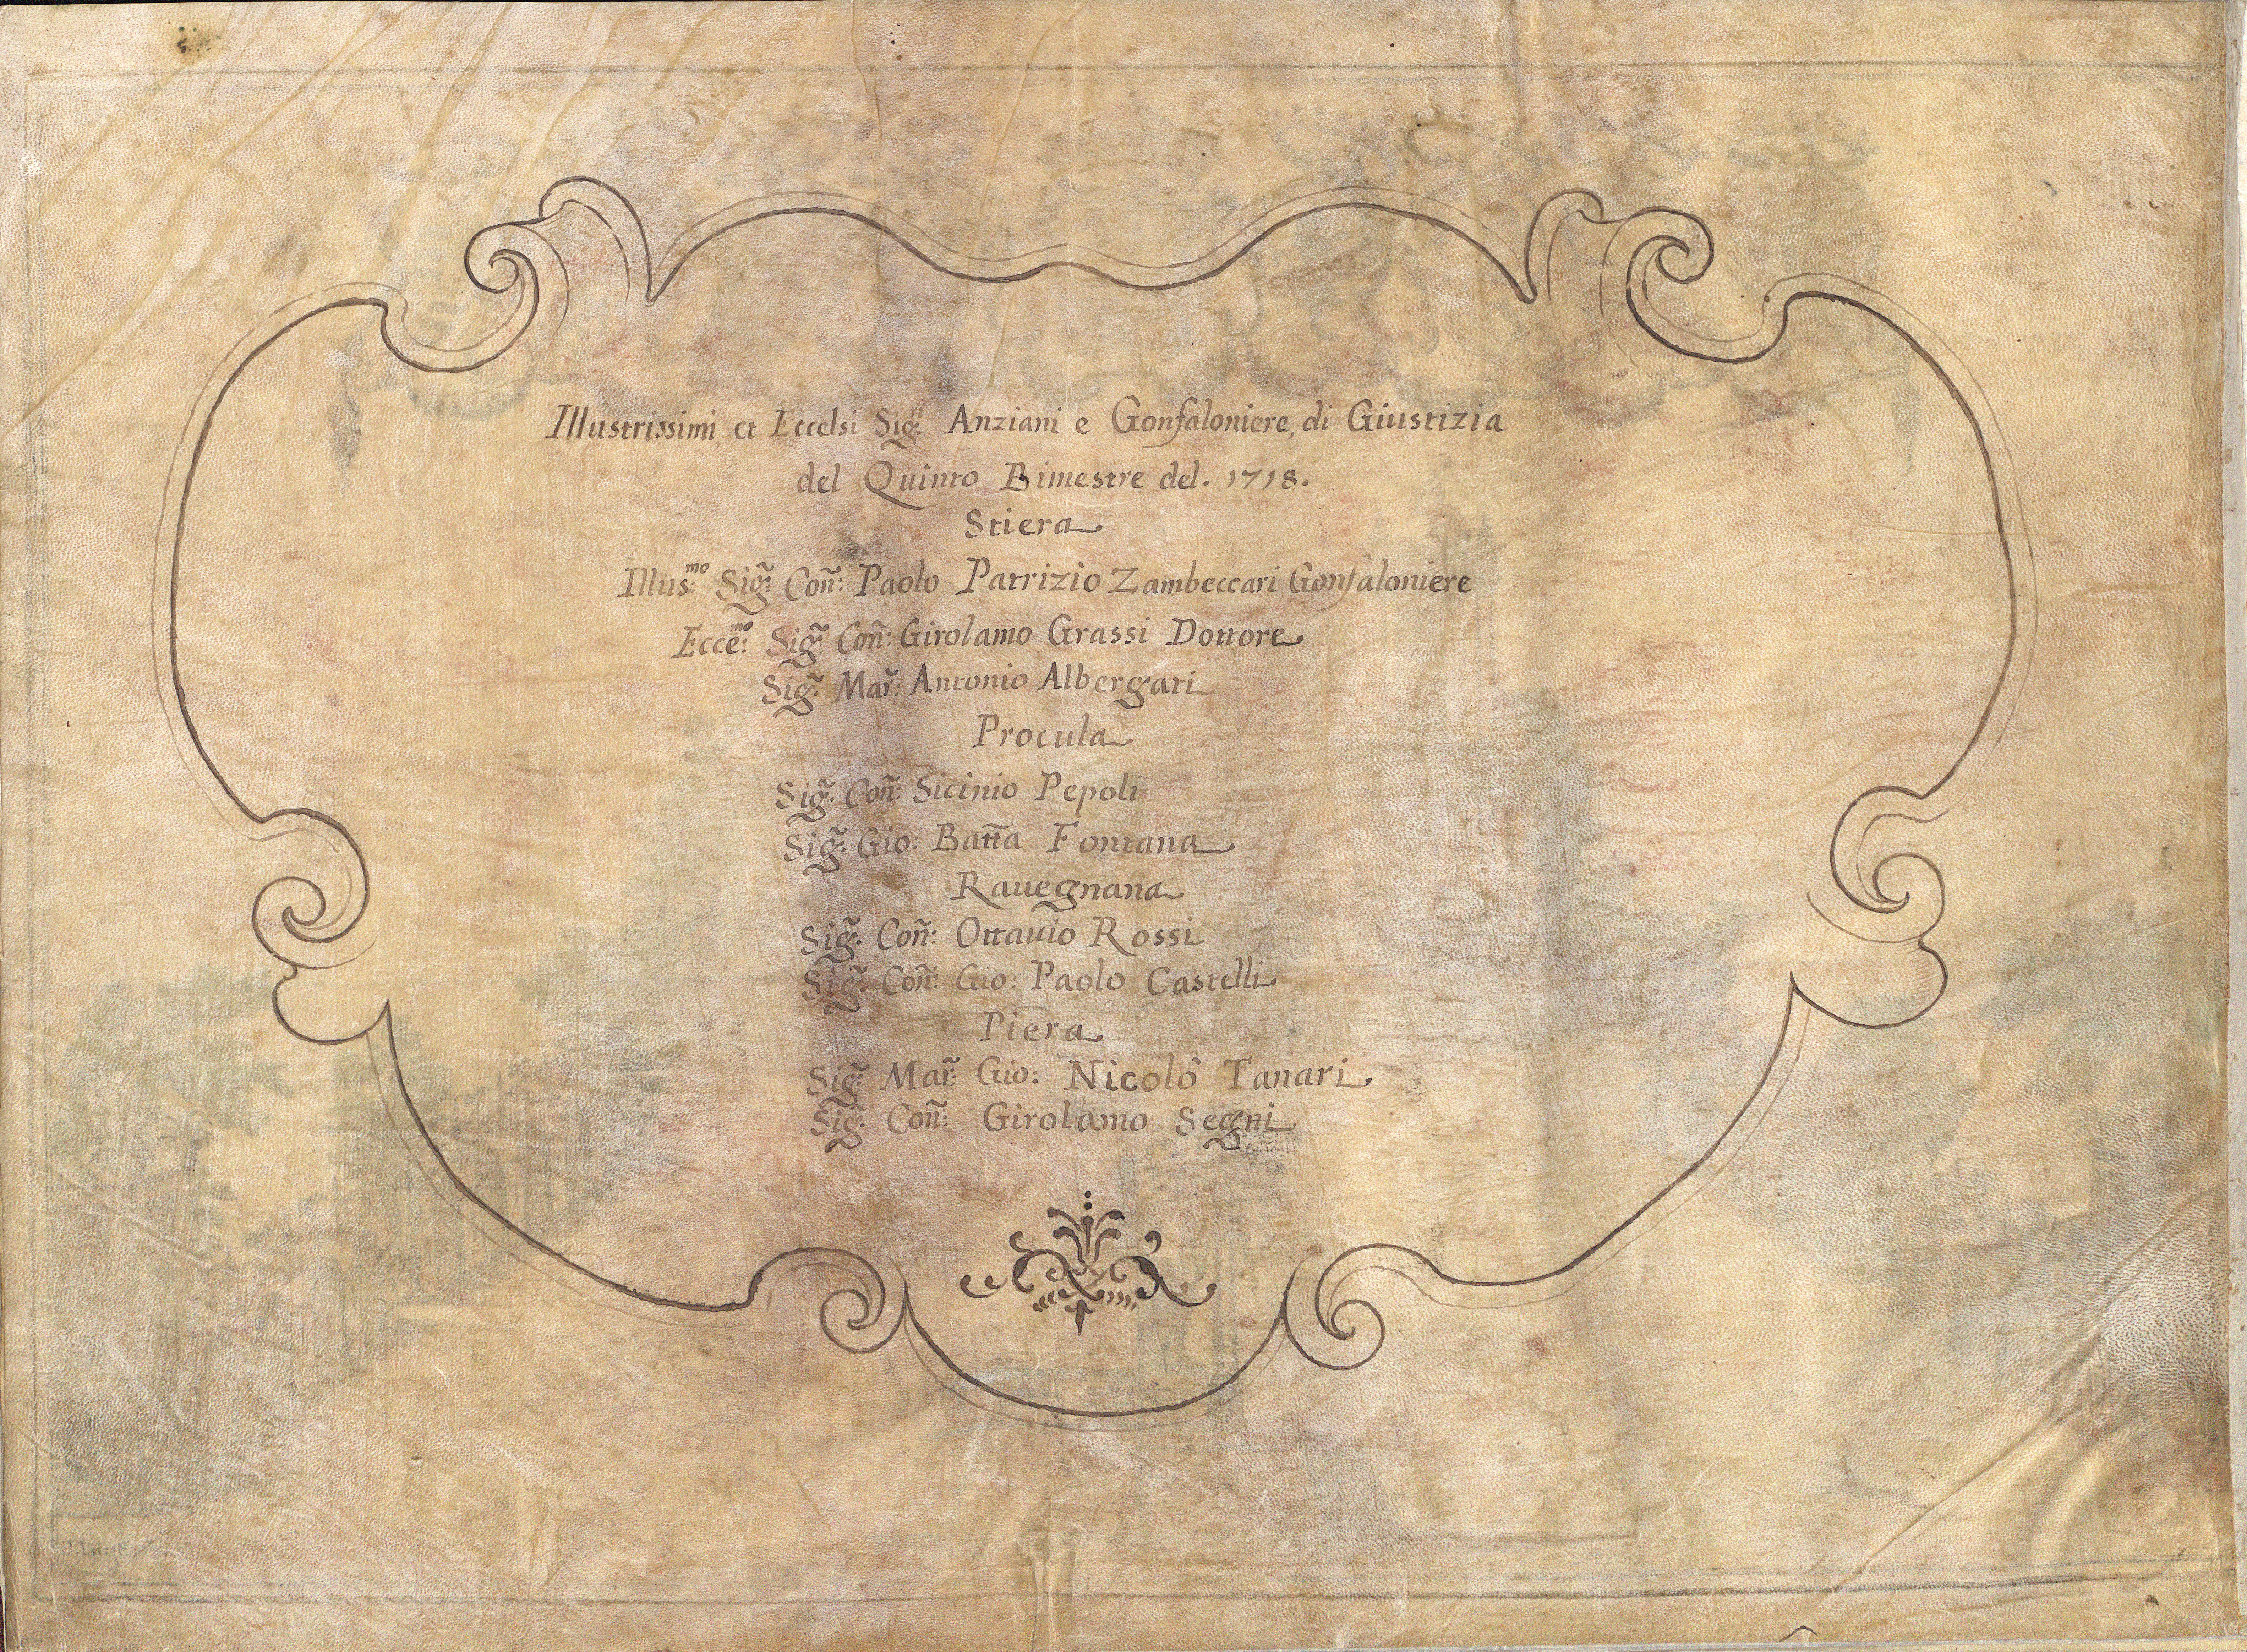 Illustrissimi, et Eccelsi Sig:ri Anziani e Gonfaloniere, di Giustizia
del Quinto Bimestre del. 1718.
Stiera
Illus:mo Sig:̃ Coñ: Paolo Patrizio Zambeccari Gonfaloniere
Ecce:mo Sig:̃ Coñ: Girolamo Grassi Dottore
Sig:̃ Mar̃: Antonio Albergati
Procula
Sig:̃ Coñ: Sicinio Pepoli
Sig:̃ Gio: Batt̃a Fontana
Rauegnana
Sig:̃ Coñ: Ottauio Rossi
Sig:̃ Coñ: Gio: Paolo Castelli
Piera
Sig:̃ Mar̃: Gio: Nicolò Tanari
Sig:̃ Coñ: Girolamo Segni